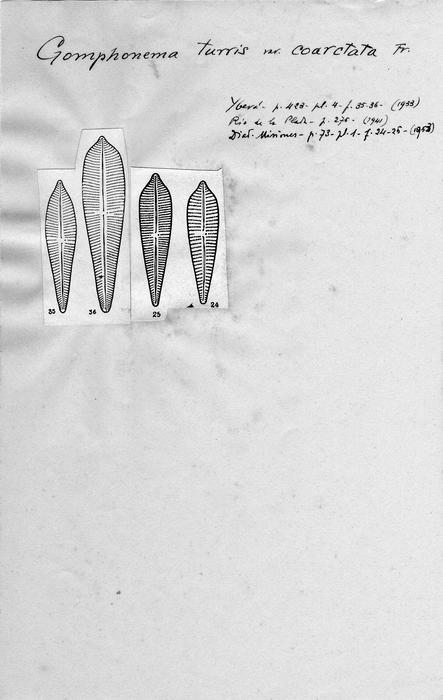 Gomphonema turris var. coarctata Fr.
Yberá - p. 423 - pl. 4 - f. 35-36 - (1933)
Rio de la Plata - p. 275 - (1941)
Diat. Misiones - p. 73 - pl. 1 - f. 24-25 - (1953)
35 36 25 24